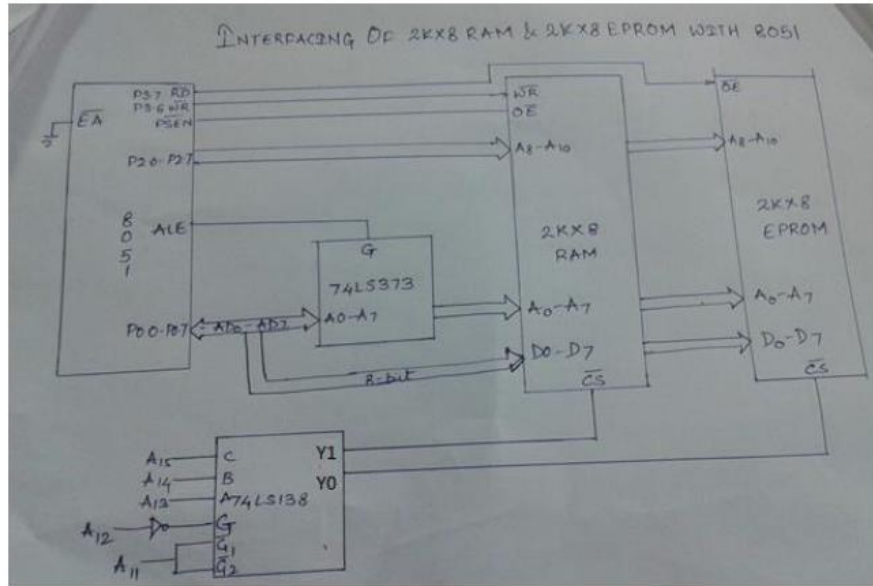 INTERFACING OF 2KX8 RAM & 2KX8 EPROM WITH 8051
P3.7 RD
P3.6 WR
PSEN
EA
P2.0-P2.7
8051
ALE
P0.0-P0.7
AD0-AD7
8-bit
G
74LS373
A0-A7
WR
OE
A8-A10
2KX8
RAM
A0-A7
D0-D7
CS
OE
A8-A10
2KX8
EPROM
A0-A7
D0-D7
CS
A15
A14
A13
A12
A11
C
B
A
74LS138
G
G1
G2
Y1
Y0